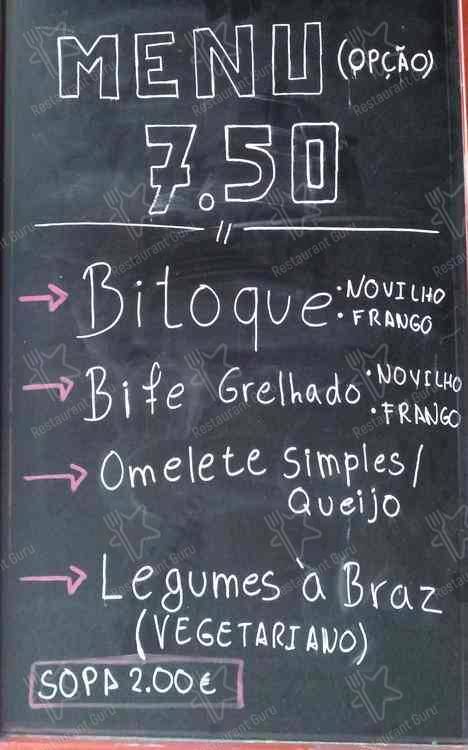 MENU (OPÇÃO)
7.50
Bitoque · NOVILHO
· FRANGO
Bife Grelhado · NOVILHO
· FRANGO
Omelete Simples/
Queijo
Legumes à Braz
(VEGETARIANO)
SOPA 2.00 €
Restaurant Guru